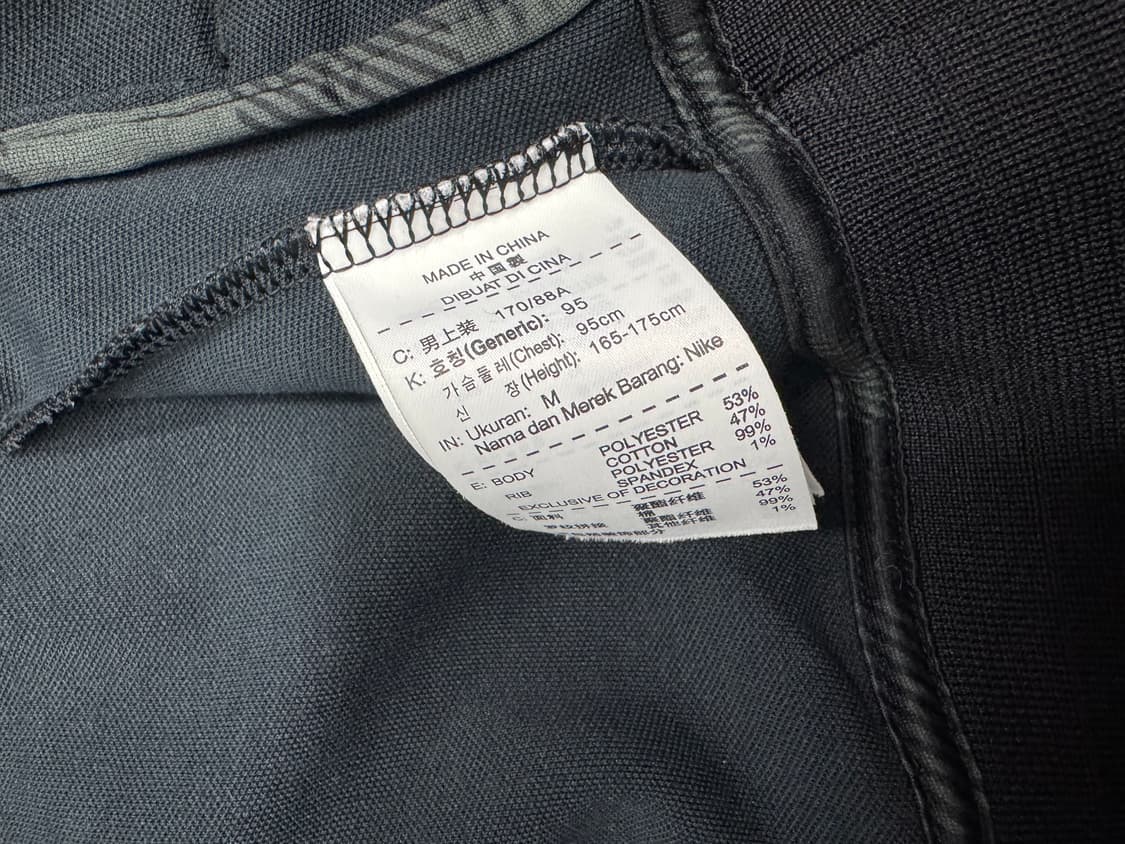 MADE IN CHINA
中国製
DIBUAT DI CINA
C: 男上装 170/88A
K: 호칭(Generic): 95
가슴둘레(Chest): 95cm
신 장(Height): 165-175cm
IN: Ukuran: M
Nama dan Merek Barang: Nike
E: BODY POLYESTER 53%
COTTON 47%
RIB POLYESTER 99%
SPANDEX 1%
EXCLUSIVE OF DECORATION
C: 面料 聚酯纤维 53%
棉 47%
罗纹拼接 聚酯纤维 99%
其他纤维 1%